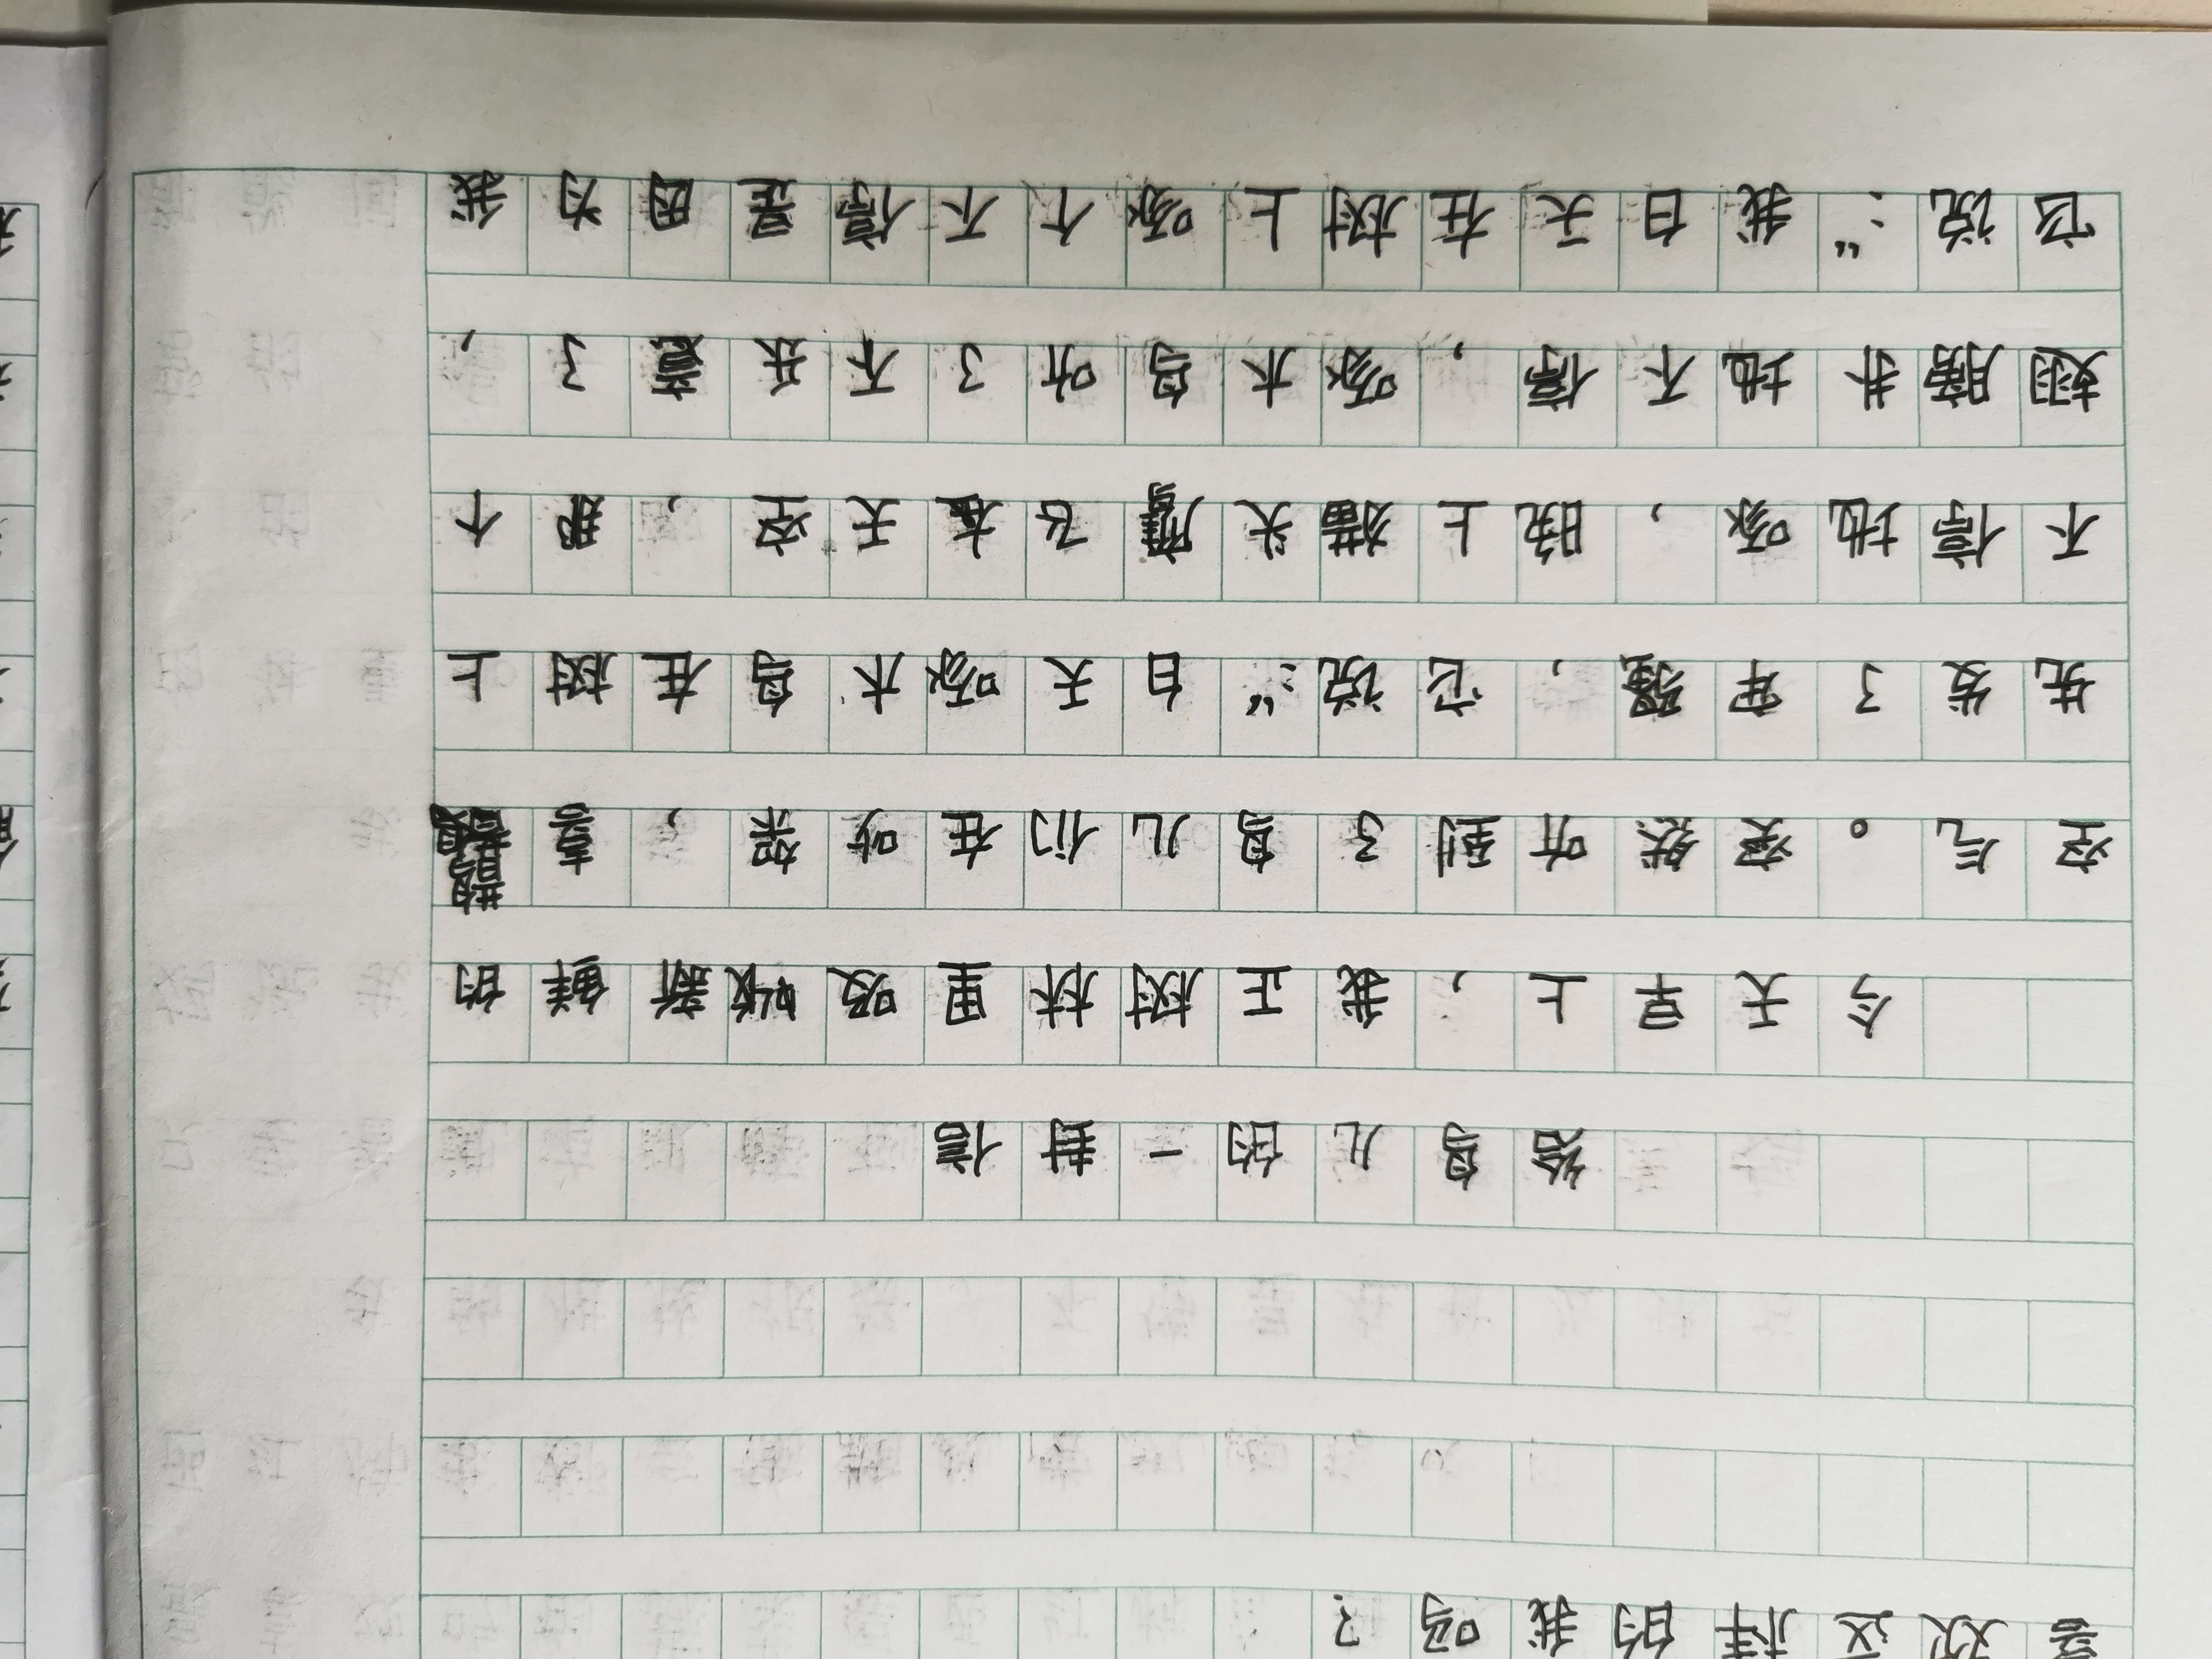 喜欢这样的我吗？
给鸟儿的一封信
今天早上，我正树林里吸收新鲜的
空气。突然听到了鸟儿们在吵架，喜
先发了牢骚，它说：“白天啄木鸟在树上
不停地啄，晚上猫头鹰飞在天空，那个
翅膀并地不停，啄木鸟听了不乐意了，
它说：“我白天在树上啄个不停是因为我